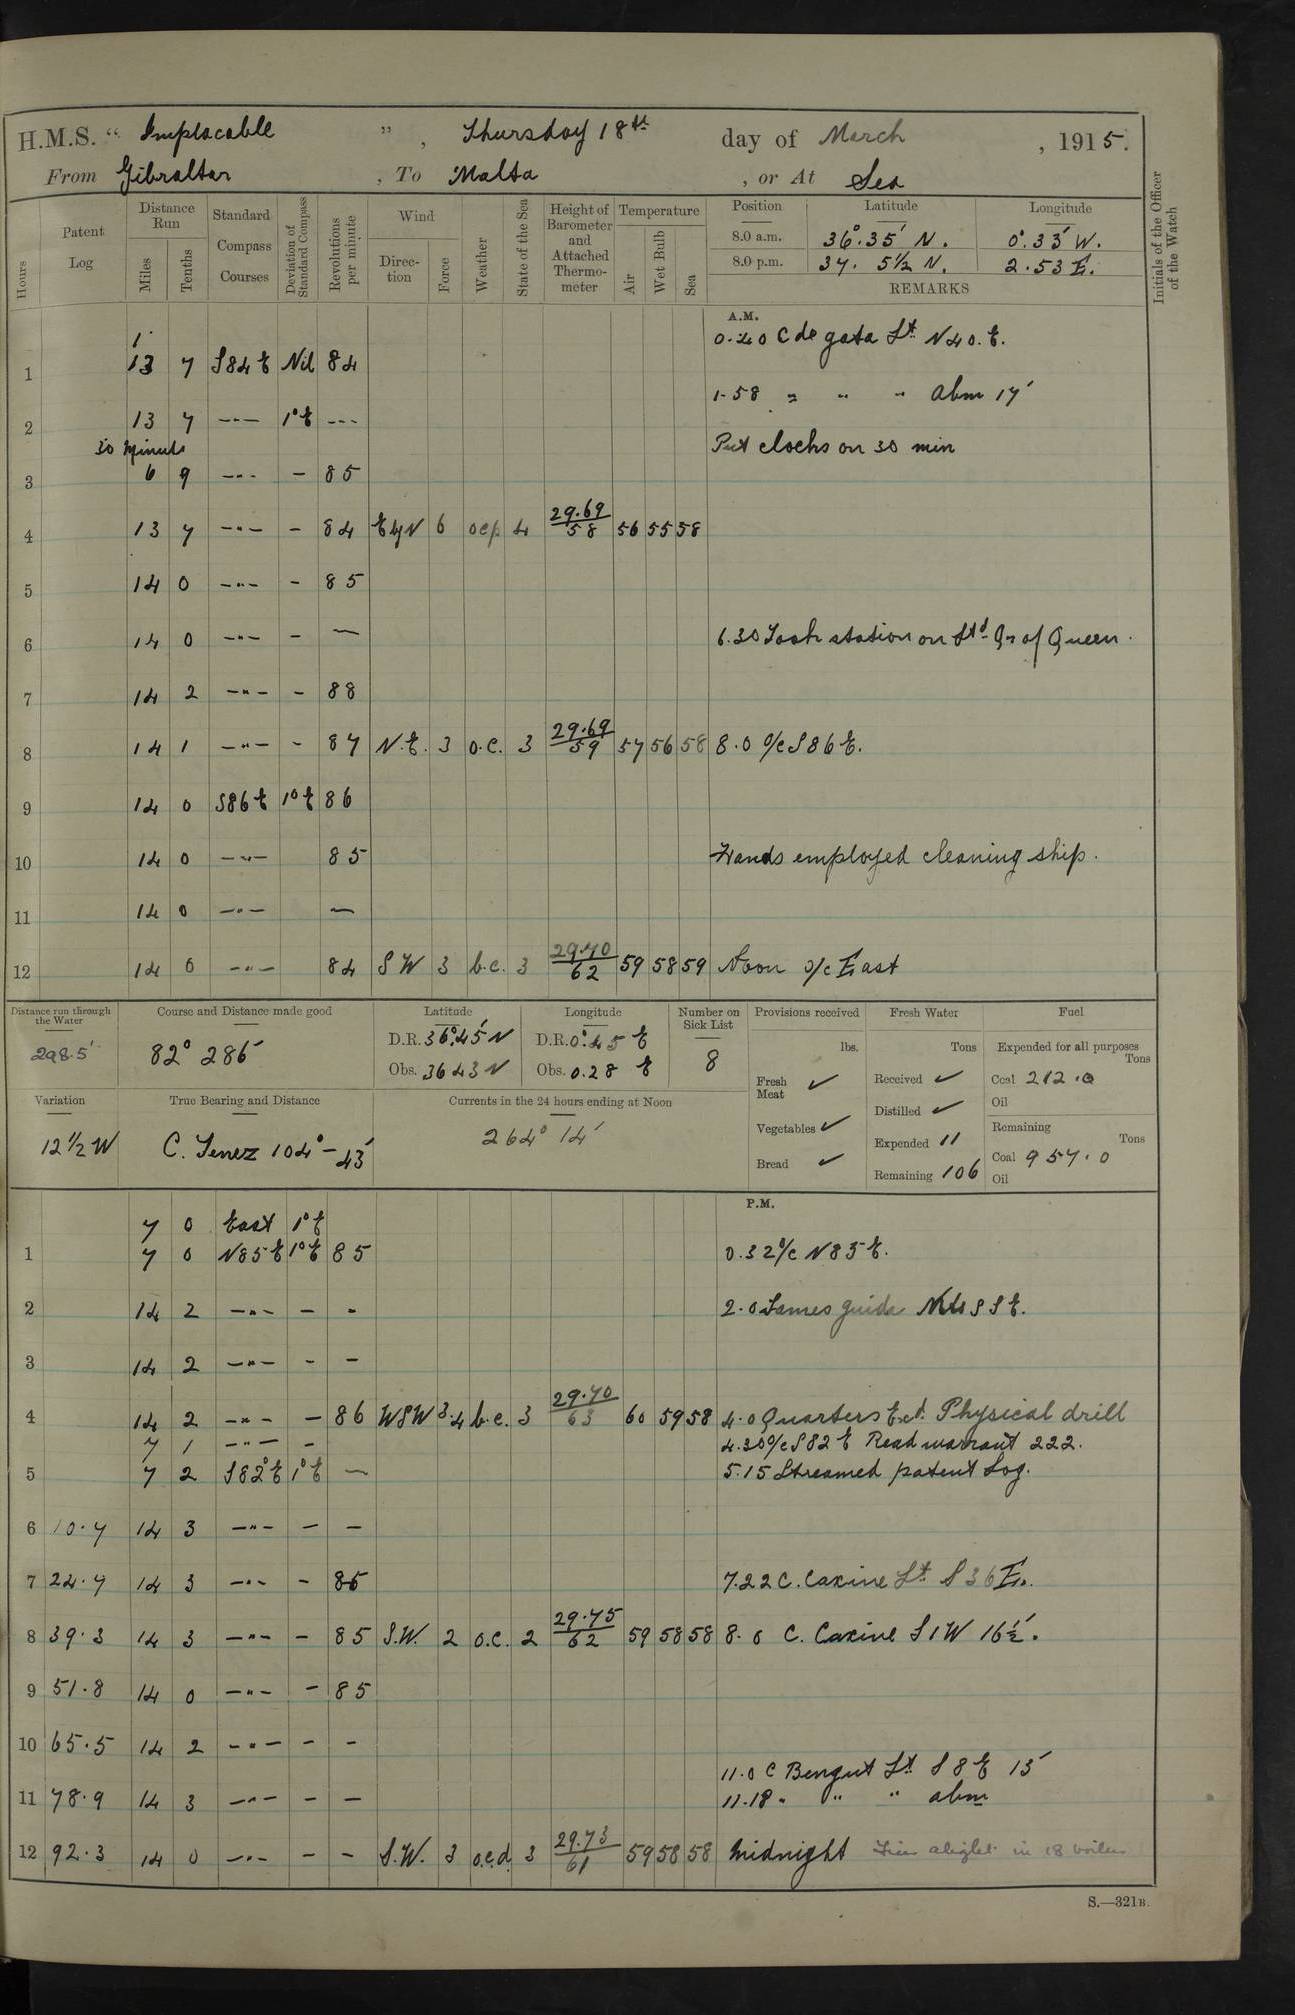 H.M.S. " Implacable ", Thursday 18th day of March, 1915.
From Gibraltar, To Malta, or At Sea
Hours
Patent Log
Distance Run
Miles
Tenths
Standard Compass Courses
Deviation of Standard Compass
Revolutions per minute
Wind
Direction
Force
Weather
State of the Sea
Height of Barometer and Attached Thermometer
Temperature
Air
Wet Bulb
Sea
Position Latitude Longitude
8.0 a.m. 36°.35' N. 0°.33' W.
8.0 p.m. 37. 5½ N. 2.53 E.
REMARKS
Initials of the Officer of the Watch
A.M.
0.40 C de gata Lt N40.E.
1 13 7 S84E Nil 84
1.58 " " " Abm 17'
2 13 7 -"- 1°E -"-
30 Minute Put clocks on 30 min
3 6 9 -"- - 85
4 13 7 -"- - 84 EbyN 6 ocp 4 29.69/58 56 55 58
5 14 0 -"- - 85
6 14 0 -"- - - 6.30 Took station on Std Qr of Queen.
7 14 2 -"- - 88
8 14 1 -"- - 87 N.E. 3 o.c. 3 29.69/59 57 56 58 8.0 a/c S86E.
9 14 0 S86E 1°E 86
10 14 0 -"- 85 Hands employed cleaning ship.
11 14 0 -"- -
12 14 0 -"- 84 SW 3 b.c. 3 29.70/62 59 58 59 Noon a/c East
Distance run through the Water 298.5'
Course and Distance made good 82° 286'
Latitude
D.R. 36°.45' N
Obs. 36 43 N
Longitude
D.R. 0°.45 E
Obs. 0.28 E
Number on Sick List 8
Provisions received
lbs.
Fresh Meat ✓
Vegetables ✓
Bread ✓
Fresh Water
Tons
Received ✓
Distilled ✓
Expended 11
Remaining 106
Fuel
Expended for all purposes
Tons
Coal 212.0
Oil
Remaining
Tons
Coal 957.0
Oil
Variation 12½ W
True Bearing and Distance C. Tenez 104° - 43'
Currents in the 24 hours ending at Noon 264° 14'
P.M.
7 0 East 1°E
1 7 0 N85E 1°E 85 0.32 a/c N85E.
2 14 2 -"- - - 2.0 James guida Mts SSE.
3 14 2 -"- - -
4 14 2 -"- - 86 WSW 3.4 b.c. 3 29.70/63 60 59 58 4.0 Quarters Exd. Physical drill
7 1 -"- - 4.30 a/c S82E Read warrant 222.
5 7 2 S82°E 1°E - 5.15 Streamed patent Log.
6 10.7 14 3 -"- - -
7 24.7 14 3 -"- - 86 7.22 C. Caxine Lt S36E.
8 39.3 14 3 -"- - 85 S.W. 2 o.c. 2 29.75/62 59 58 58 8.0 C. Caxine S1W 16½'.
9 51.8 14 0 -"- - 85
10 65.5 14 2 -"- - -
11.0 C Bengut Lt S8E 13'
11 78.9 14 3 -"- - - 11.18 " " " abm
12 92.3 14 0 -"- - - S.W. 3 o.c.d. 3 29.73/61 59 58 58 Midnight Fires alight in 18 boilers
S.—321B.